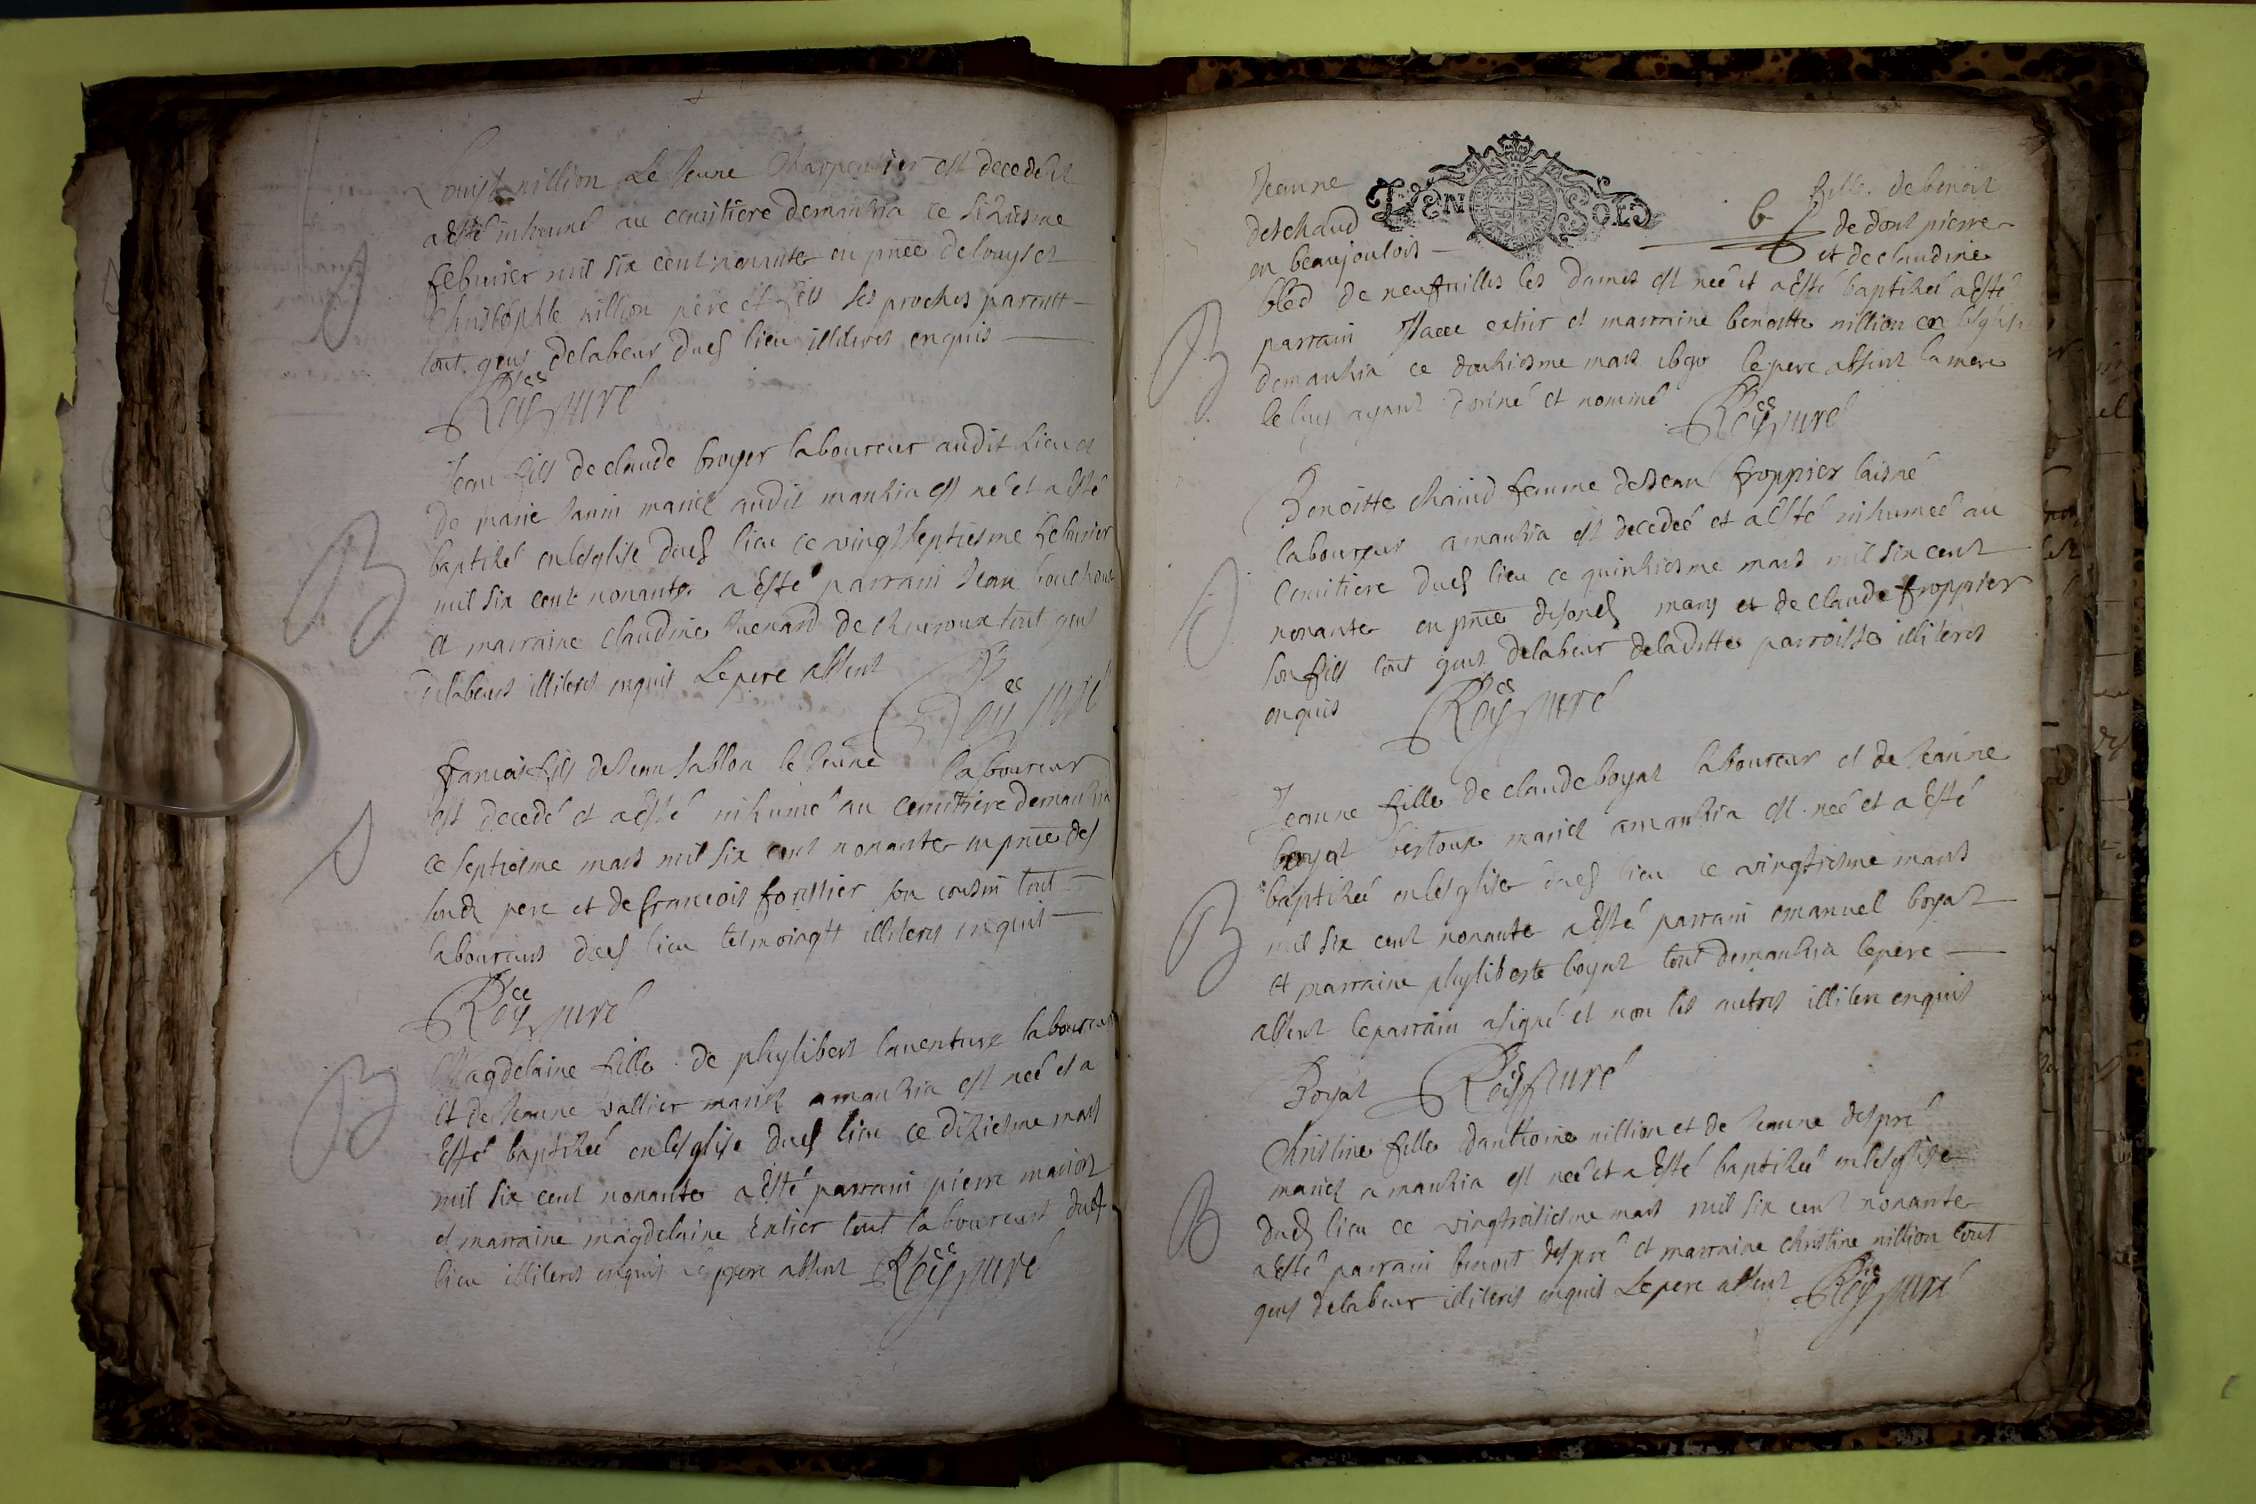 Louis nillion le Jeune Charpentier est decedé et
a esté inhumé au cemitiere demanhia ce sixiesme
febvrier mil six cent nonante en pnce delouys et
Christophle nillion pere et fils ses proches parents
tout gens delabeur dud lieu illiteres enquis
Roy curé
S
Jean fils de claude broyer laboureur audit lieu et
de marie Janin mariez audit manhia est né et a esté
baptizé enlesglise dud lieu ce vingt septiesme febvrier
mil six cent nonante a esté parrain Jean bouchoux
et marraine claudine Renard de tout gens
delabeur illiteres enquis Le pere absent
Roy curé
B
francois fils de Jean Sablon le Jeune laboureur
est decedé et a esté inhumé au cemitiere demanhia
ce septiesme mars mil six cent nonante en pnce des
sond pere et de francois forissier son cousin tout
laboureurs dud lieu tesmoingts illiteres enquis
Roy curé
S
Magdelaine fille de phylibert laventure laboureur
et de Jeanne vallier mariez a manhia est neé et a
esté baptizeé en lesglise dud lieu ce diziesme mars
mil six cent nonante a esté parrain pierre marion
et marraine magdelaine extier tout laboureurs dud
lieu illiteres enquis le pere absent Roy curé
B
Jeanne fille de benoit
deschaud de dont pierre
VEN SOLS
6
en beaujoulois et de claudine
bled de neufvilles les dames est neé et a esté baptizeé a esté
parrain extier et marraine benoitte nillion en lesglise
demanhia ce douziesme mars le pere absent la mere
le luy ayant donné et nommé Roy curé
B
Benoitte chanid femme de Jean froppier laisné
laboureur a manhia est decedeé et a esté inhumeé au
Cemitiere dud lieu ce quinziesme mars mil six cent
nonante en pnce desond mary et de claude froppier
son fils tout gens delabeur deladitte parroisse illiteres
enquis Roy curé
S
Jeanne fille de claude boyat laboureur et de Jeanne
boyat bertoux mariez a manhia est neé et a esté
baptizeé en lesglise dud lieu ce vingtiesme mars
mil six cent nonante a esté parrain emanuel boyat
et marraine phyliberte boyat tout demanhia le pere
absent le parrain a signé et non les autres illitere enquis
Boyat Roy curé
B
Christine fille danthoine nillion et de Jeanne despré
mariez a manhia est neé et a esté baptizeé en lesglise
dud lieu ce vingtroisiesme mars mil six cent nonante
a esté parrain benoit despré et marraine christine nillion tout
gens delabeur illiteres enquis Le pere absent Roy curé
B